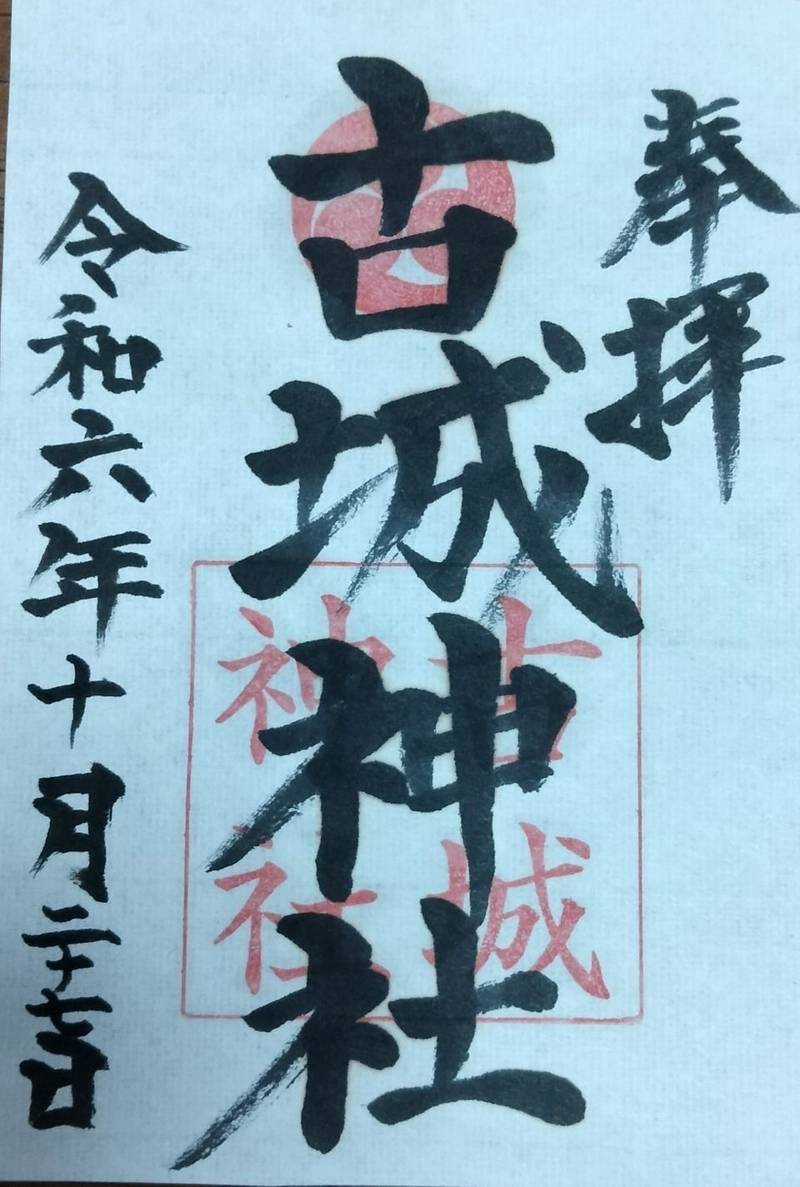 奉拝
古城神社
古城
神社
令和六年十月二十七日